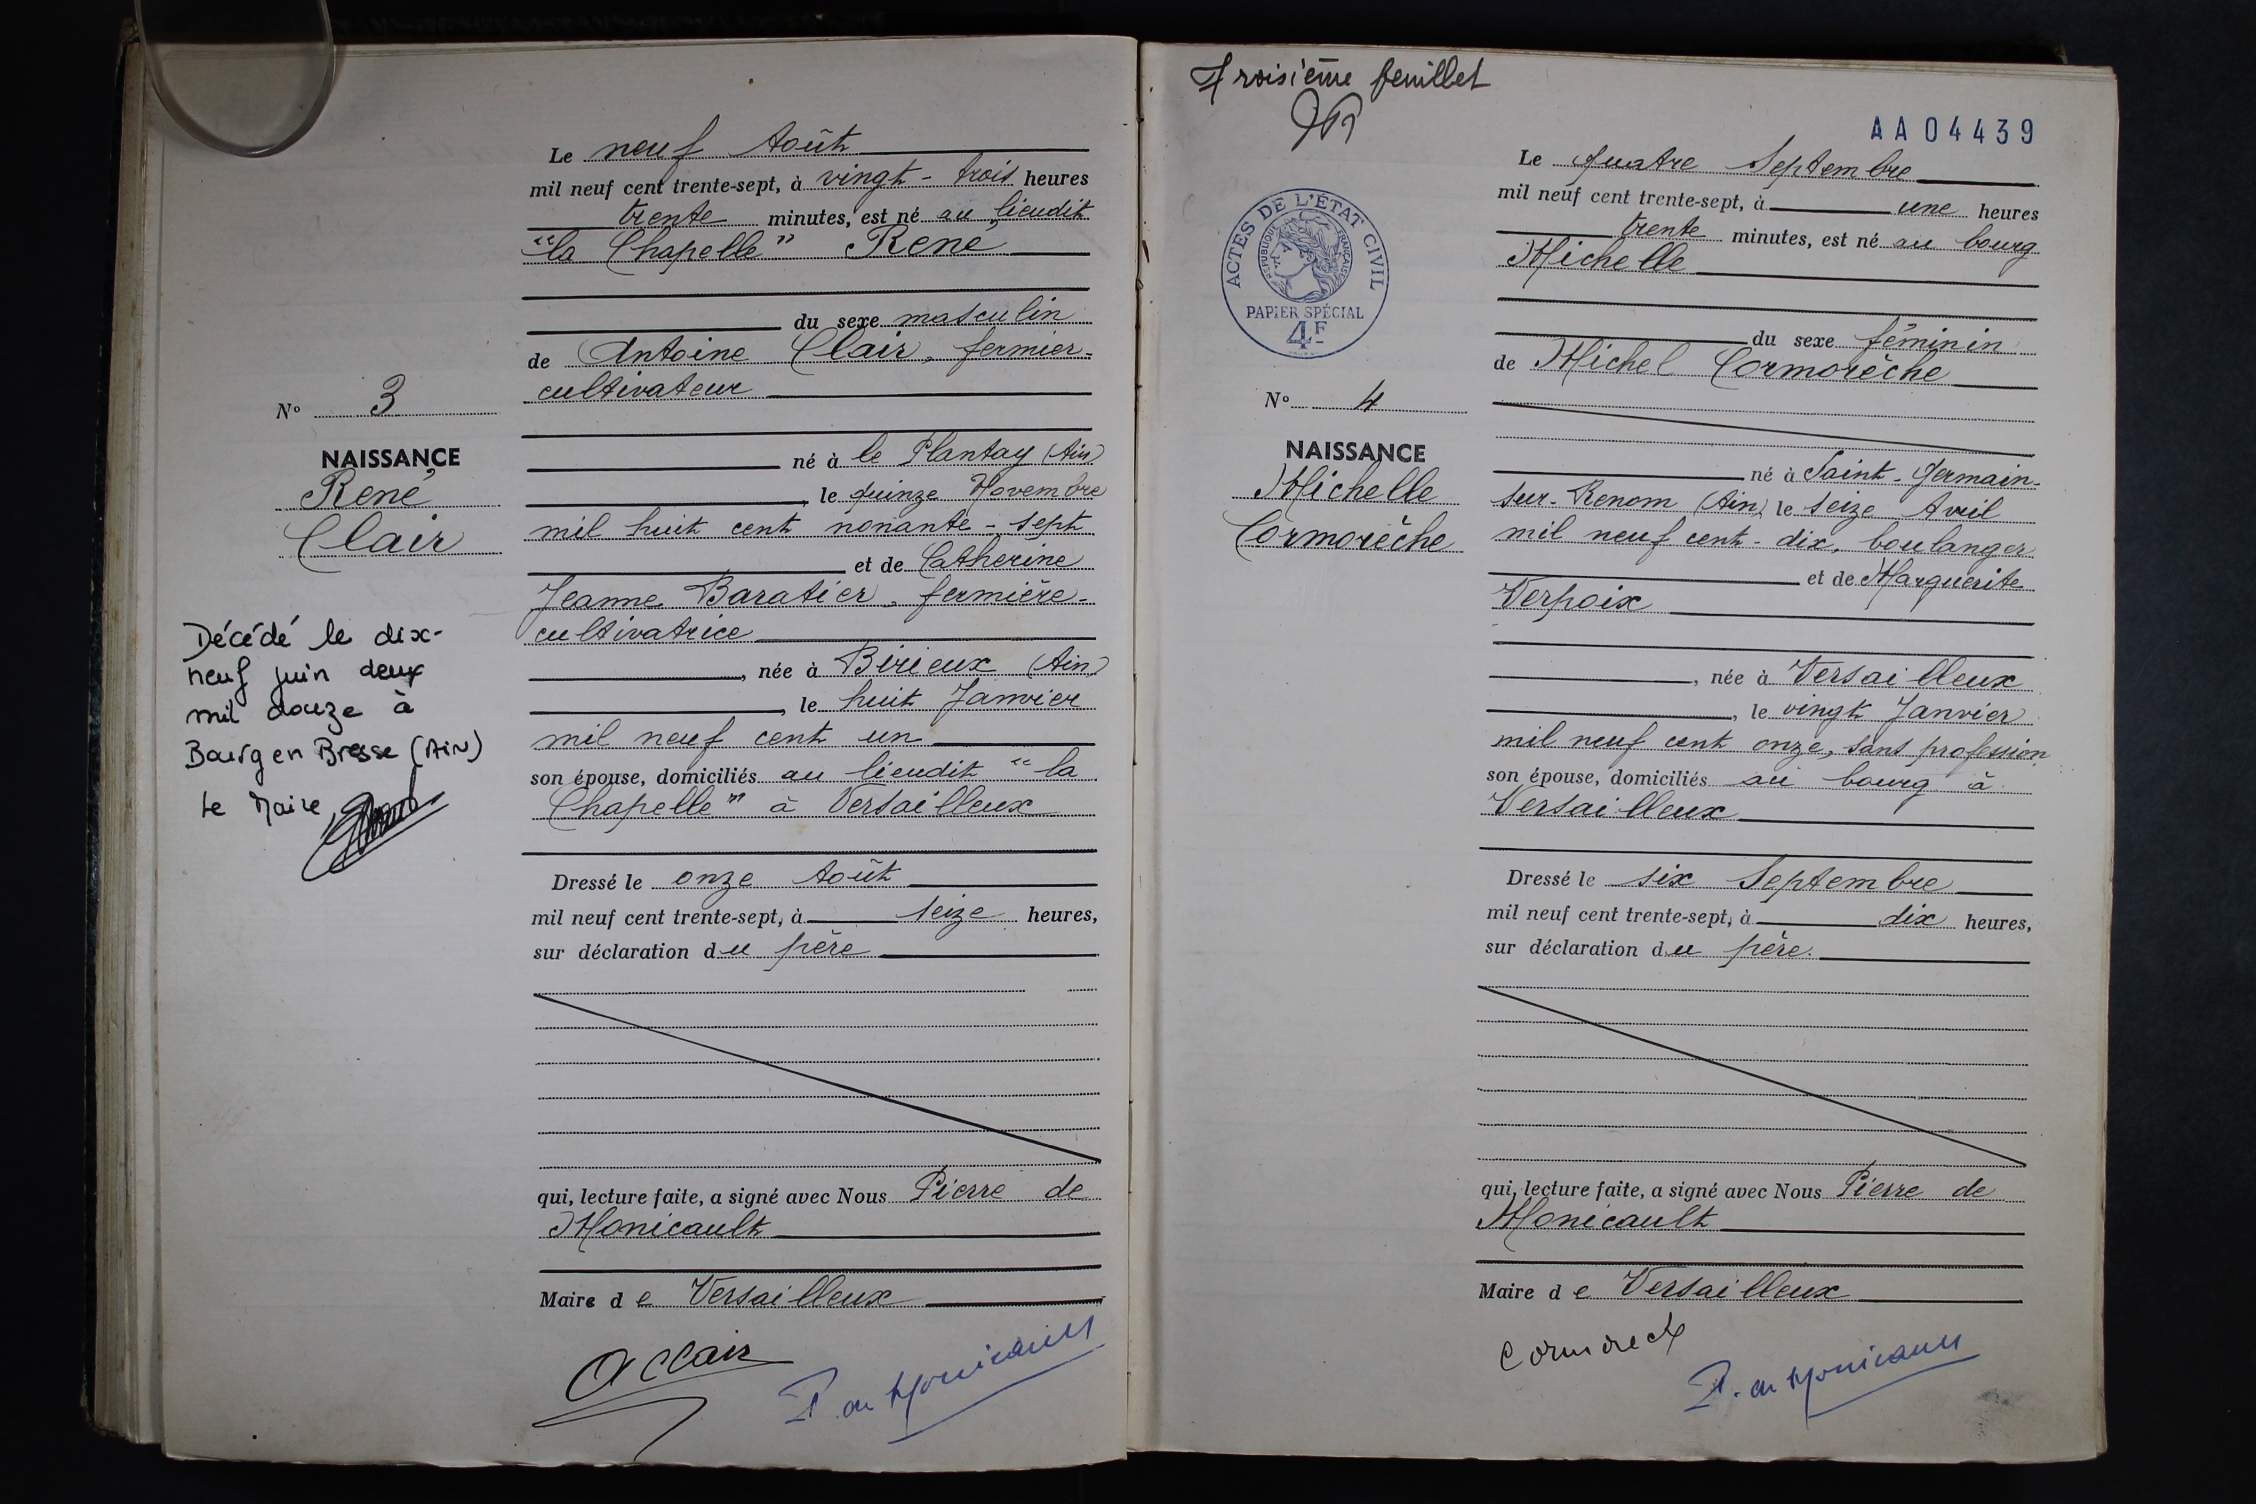 Le neuf Août
mil neuf cent trente-sept, à vingt-trois heures
trente minutes, est né au lieudit
"la Chapelle" René
du sexe masculin
de Antoine Clair, fermier-
cultivateur
né à le Plantay (Ain)
, le quinze Novembre
mil huit cent nonante-sept
et de Catherine
Jeanne Baratier, fermière-
cultivatrice
, née à Birieux (Ain)
, le huit Janvier
mil neuf cent un
son épouse, domiciliés au lieudit "la
Chapelle" à Versailleux
Dressé le onze Août
mil neuf cent trente-sept, à seize heures,
sur déclaration du père
qui, lecture faite, a signé avec Nous Pierre de
Monicault
Maire de Versailleux
A Clair
P. de Monicault
N° 3
NAISSANCE
René
Clair
Décédé le dix-
neuf juin deux
mil douze à
Bourg en Bresse (AIN)
Le Maire,
Troisième feuillet
AA04439
ACTES DE L'ÉTAT CIVIL
RÉPUBLIQUE FRANÇAISE
PAPIER SPÉCIAL
4F
N° 4
NAISSANCE
Michelle
Cormorèche
Le quatre Septembre
mil neuf cent trente-sept, à une heures
trente minutes, est né au bourg
Michelle
du sexe féminin
de Michel Cormorèche
né à Saint-Germain-
sur-Renom (Ain) le seize Avril
mil neuf cent-dix, boulanger
et de Marguerite
Verpoix
, née à Versailleux
, le vingt Janvier
mil neuf cent onze, sans profession
son épouse, domiciliés au bourg à
Versailleux
Dressé le six Septembre
mil neuf cent trente-sept, à dix heures,
sur déclaration du père.
qui, lecture faite, a signé avec Nous Pierre de
Monicault
Maire de Versailleux
Cormorech
P. de Monicault